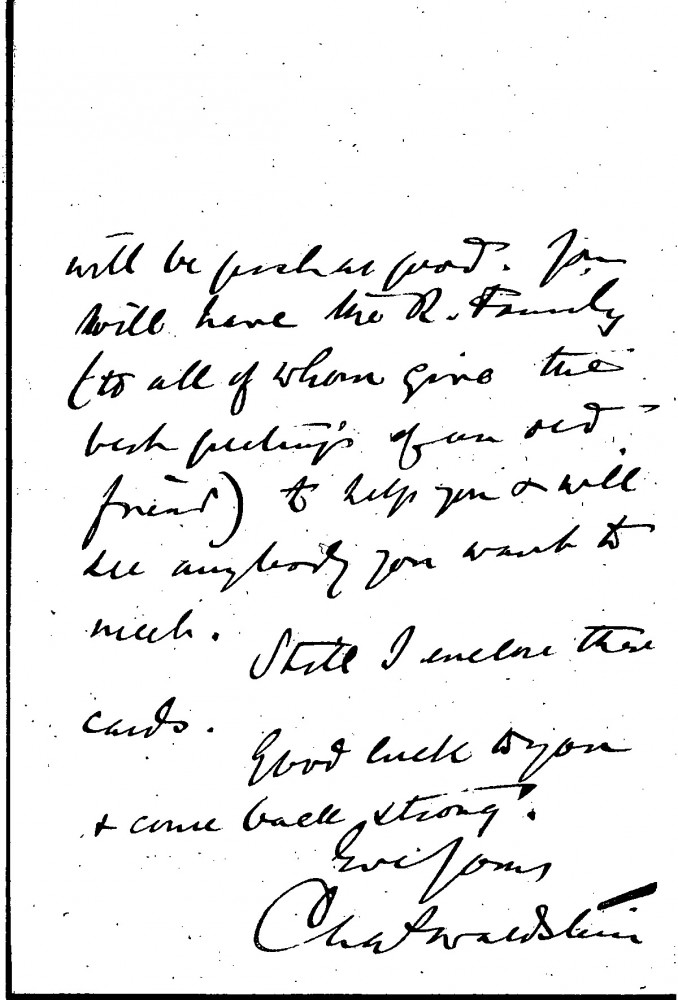 will be just as good. You
will have the R. Family
(to all of whom give the
best greetings of an old
friend) to help you & will
see anybody you want to
meet.
Still I enclose these
cards.
Good luck to you
& come back strong.
Ever yours
Cha Waldstein